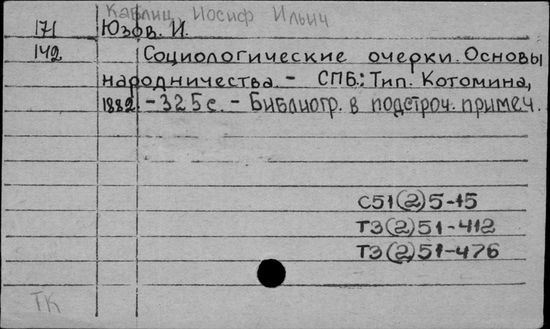 Каблиц, Иосиф Ильич
171 Юзов. И.
142 Социологические очерки. Основы
народничества. – СПб.: Тип. Котомина,
1882. – 325 с. – Библиогр. в подстроч. примеч.
С51(2)5-15
Т3(2)51-412
Т3(2)51-476
ТК